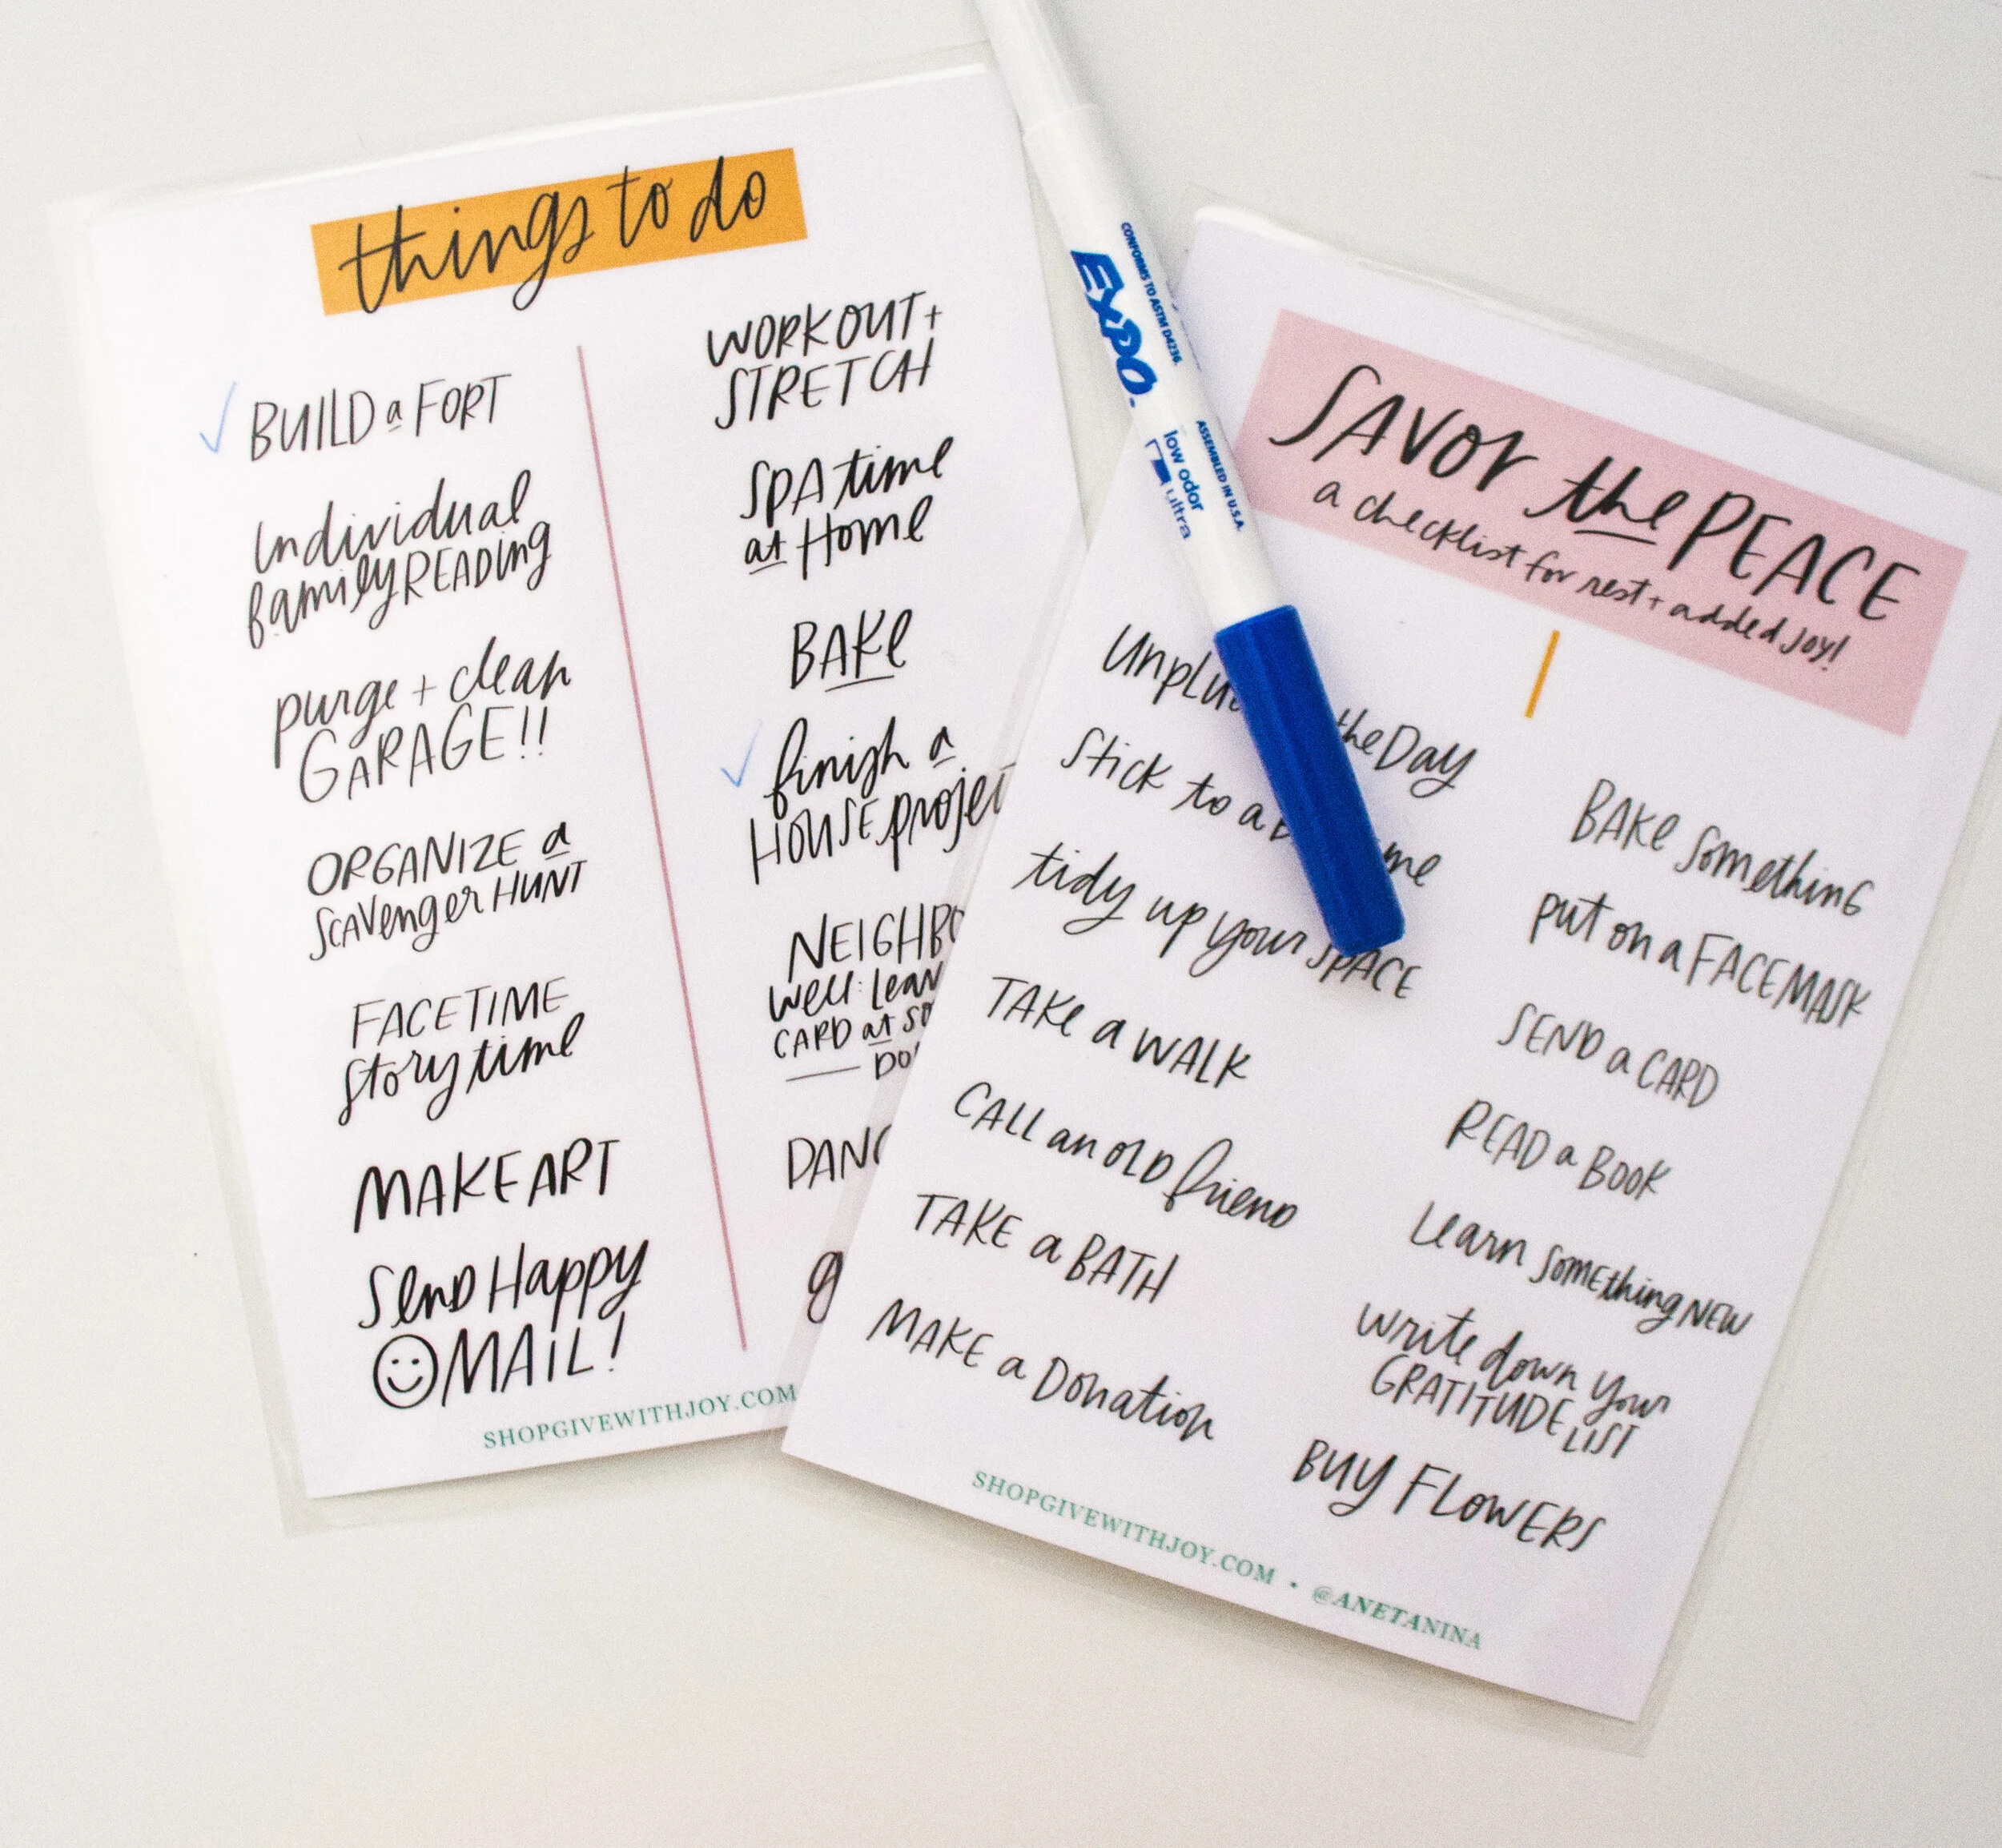 things to do
✓ BUILD a FORT
Individual
family READING
purge + clean
GARAGE!!
ORGANIZE a
SCAVenger HUNT
FACETIME
story time
MAKE ART
SenD Happy
MAiL!
WORKOUT +
STRETCH
SPA time
at Home
BAKe
✓ finish a
HOUSE
well:
CARD at
SHOPGIVEWITHJOY.COM
CONFORMS TO ASTM D4236
EXPO
ASSEMBLED IN U.S.A.
low odor
ultra
SAVOr the PEACE
a checklist for rest + added joy!
the Day
Stick to a
tidy up your SPACE
TAKe a WALK
CALL an OLD friend
TAKE a BATH
MAKE a Donation
BAKe SomethinG
put on a FACE MASK
SEND a CARD
READ a BOOK
Learn SomEthing NEW
write down your
GRATITUDE LIST
BUY FLOWERS
SHOPGIVEWITHJOY.COM • @ANETANINA